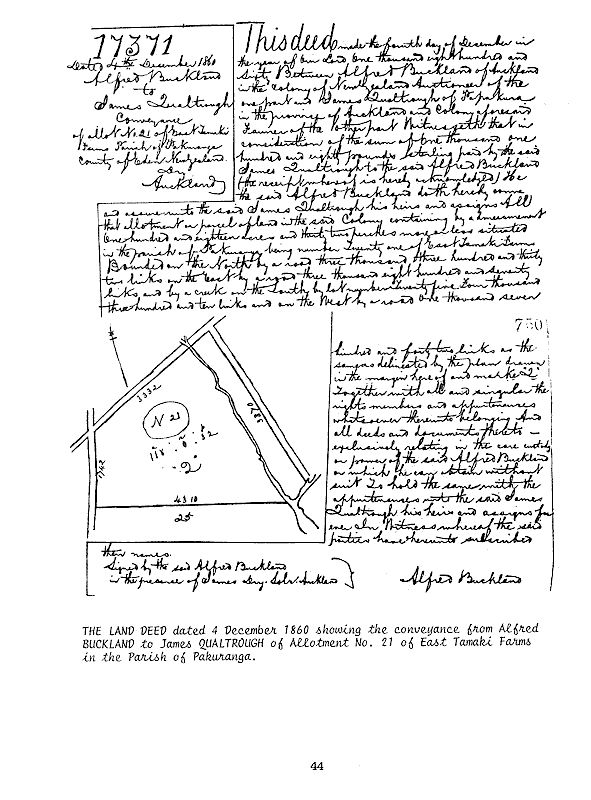 17371
Dated 4th December 1860
Alfred Buckland
to
James Qualtrough
Conveyance
of allot. No 21 of East Tamaki
Farms Parish of Pakuranga
County of Eden New Zealand
Auckland
This deed made the fourth day of December in
the year of Our Lord One thousand eight hundred and
Sixty Between Alfred Buckland of Auckland
in the Colony of New Zealand Auctioneer of the
one part and James Qualtrough of Papakura
in the province of Auckland and Colony aforesaid
Farmer of the other part Witnesseth that in
consideration of the sum of One thousand one
hundred and eight pounds Sterling paid by the said
James Qualtrough to the said Alfred Buckland
(the receipt whereof is hereby acknowledged) He
the said Alfred Buckland doth hereby convey
and assure unto the said James Qualtrough his heirs and assigns All
that allotment or parcel of land in the said Colony containing by admeasurement
One hundred and eighteen acres and thirty two perches more or less situated
in the parish of Pakuranga being number Twenty one of East Tamaki Farms
Bounded on the North by a road three thousand three hundred and thirty
two links on the East by a road three thousand eight hundred and seventy
links and by a creek on the South by lot number Twenty five Four thousand
three hundred and ten links and on the West by a road One thousand seven
750
hundred and forty two links as the
same is delineated by the plan drawn
in the margin hereof and marked 2
Together with all and singular the
rights members and appurtenances
whatsoever thereunto belonging And
all deeds and documents thereto
exclusively relating in the care custody
or power of the said Alfred Buckland
or which he can obtain without
suit To hold the same with the
appurtenances unto the said James
Qualtrough his heirs and assigns for
ever In Witness whereof the said
parties have hereunto subscribed
3332
N 21
3870
118 . 0 . 32
2
1742
4310
25
their names.
Signed by the said Alfred Buckland
in the presence of James Solr. Auckland
Alfred Buckland
THE LAND DEED dated 4 December 1860 showing the conveyance from Alfred
BUCKLAND to James QUALTROUGH of Allotment No. 21 of East Tamaki Farms
in the Parish of Pakuranga.
44